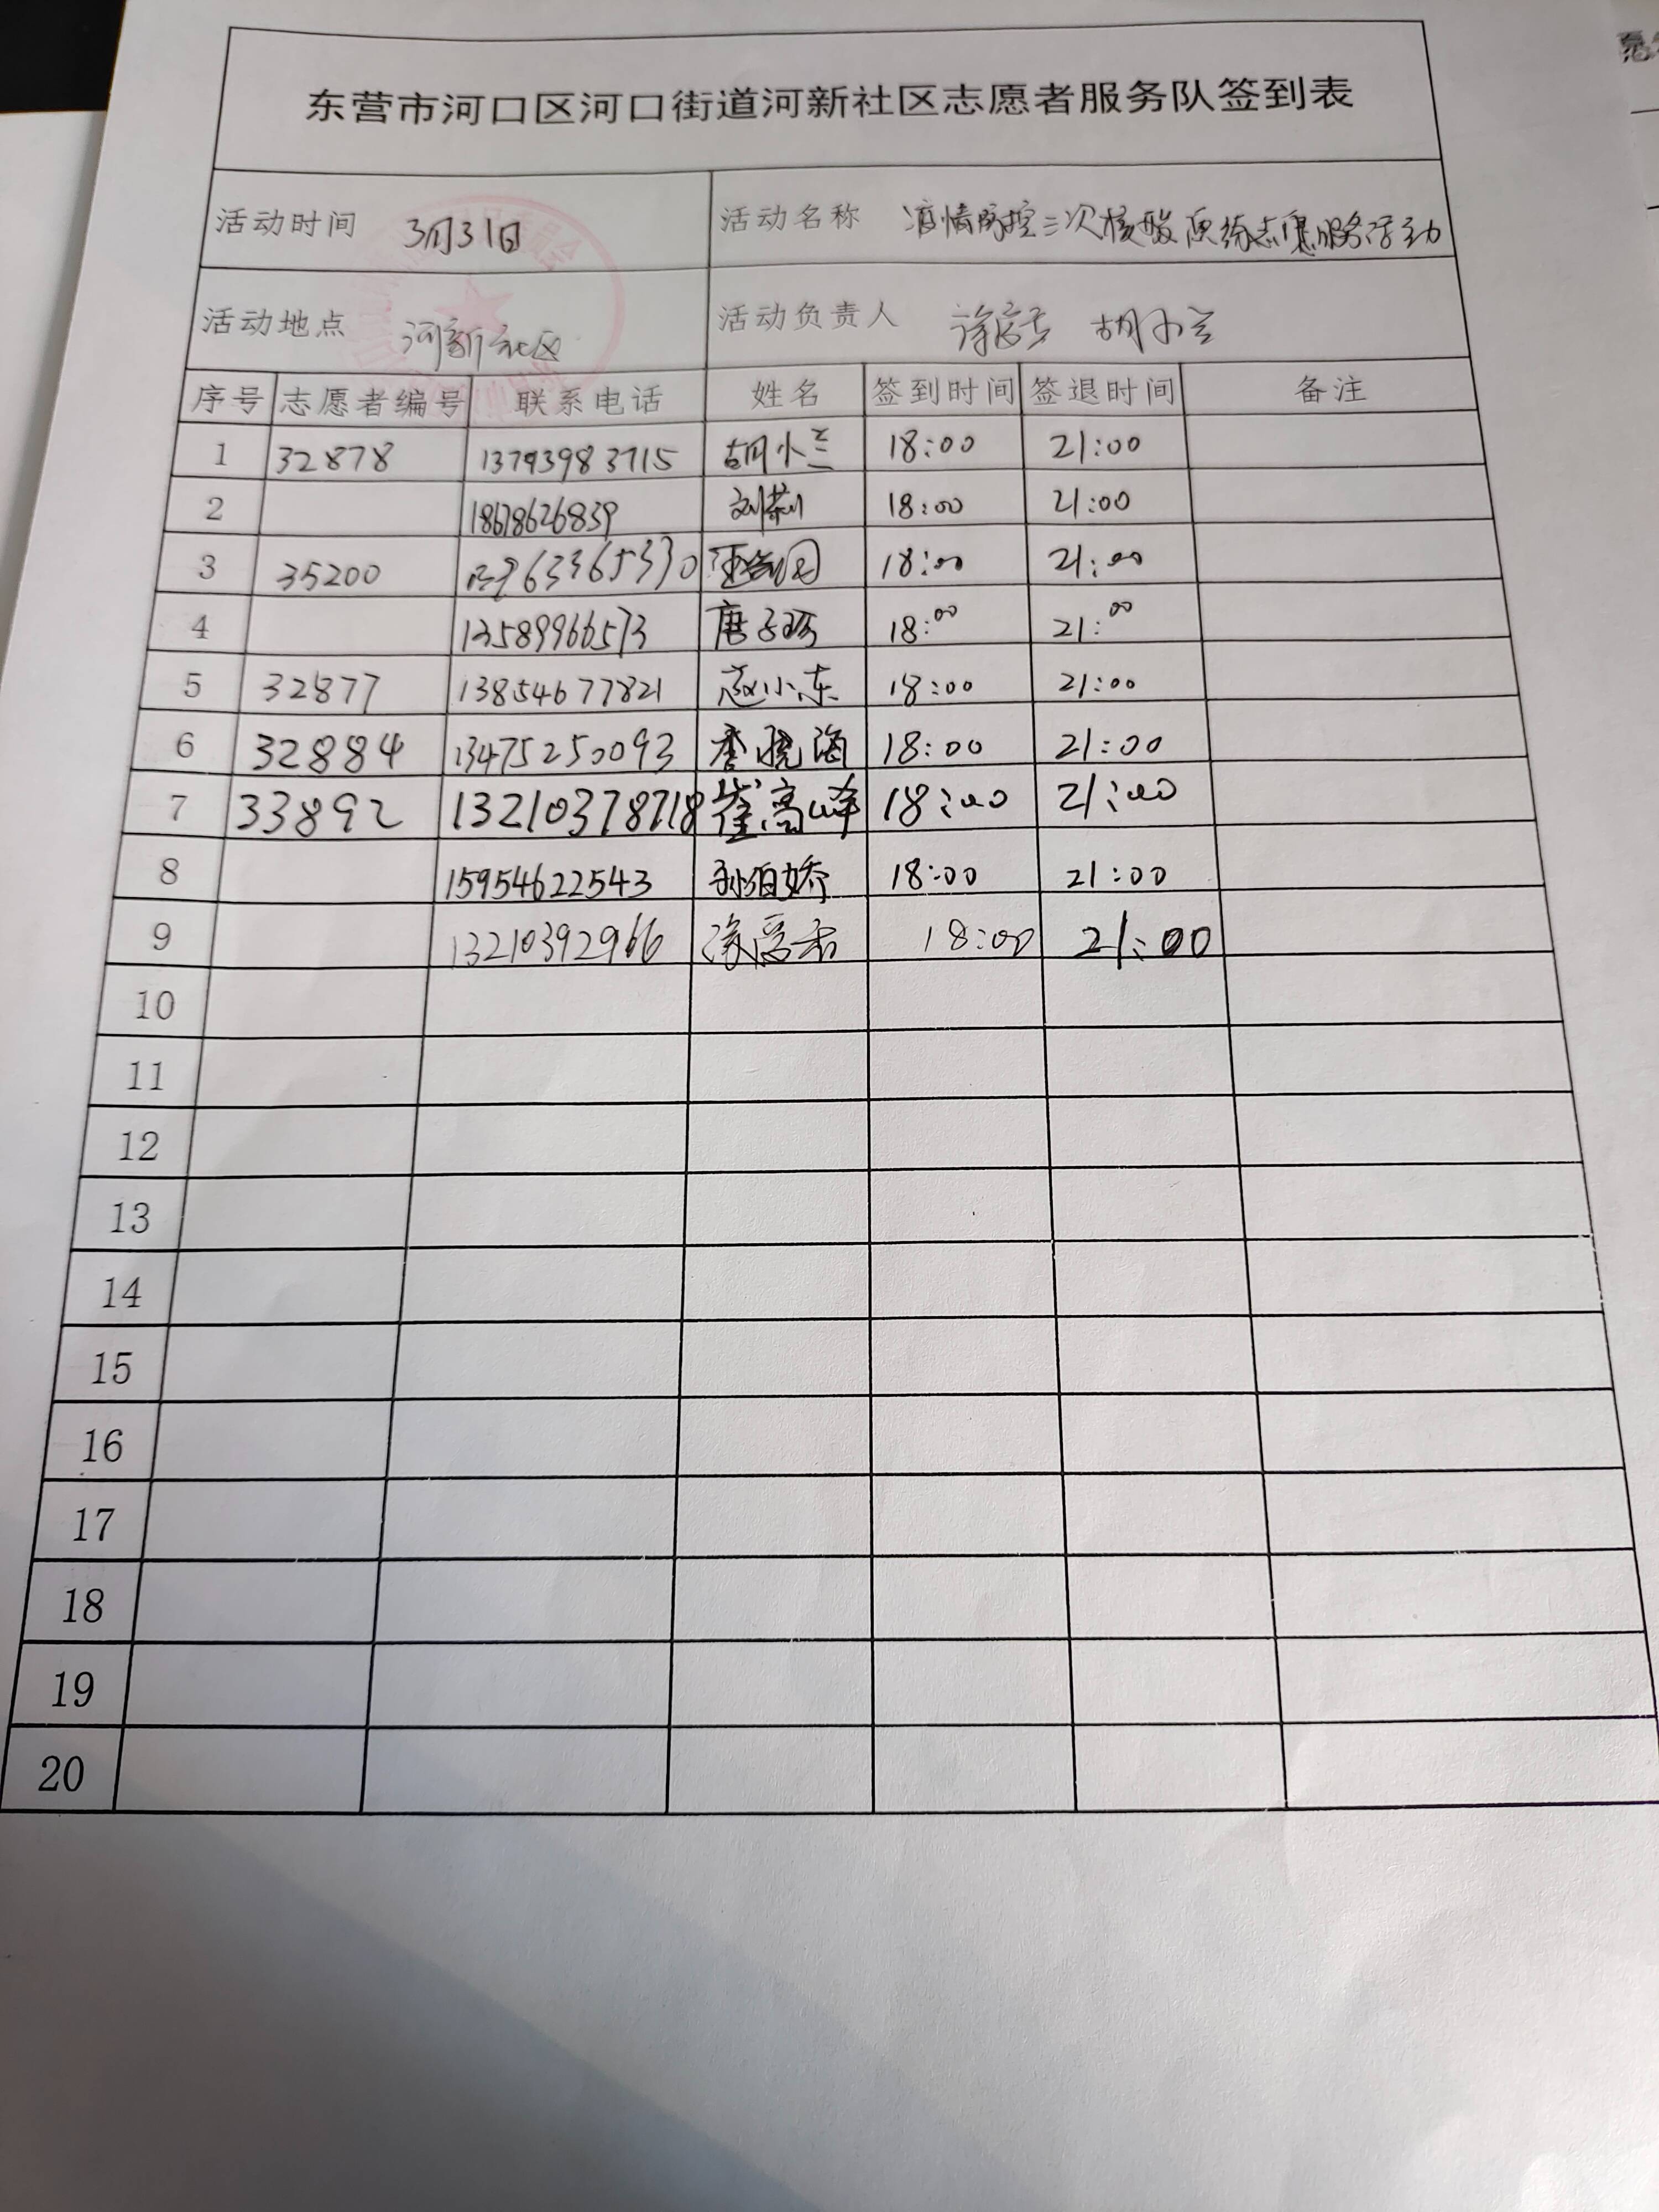 东营市河口区河口街道河新社区志愿者服务队签到表
活动时间 3月31日 活动名称 疫情防控三次核酸 志愿服务活动
活动地点 河新社区 活动负责人 胡小兰
序号 志愿者编号 联系电话 姓名 签到时间 签退时间 备注
1 32878 13793983715 胡小兰 18:00 21:00
2 18678626839 刘莉 18:00 21:00
3 35200 18:00 21:00
4 13589966573 唐子珺 18:00 21:00
5 32877 13854677821 赵小东 18:00 21:00
6 32884 13475250093 李晓海 18:00 21:00
7 33892 13210378718 崔高峰 18:00 21:00
8 15954622543 孙伯娇 18:00 21:00
9 13210392966 18:00 21:00
10
11
12
13
14
15
16
17
18
19
20